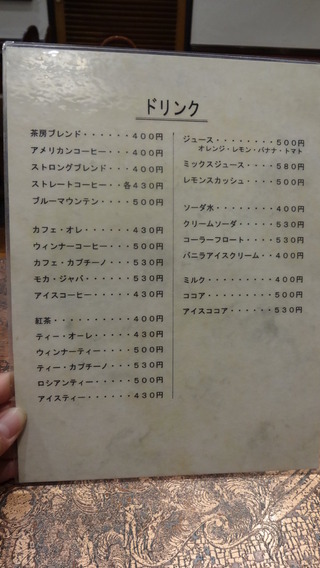 ドリンク
茶房ブレンド・・・・・・４００円
アメリカンコーヒー・・・４００円
ストロングブレンド・・・４００円
ストレートコーヒー・・各４３０円
ブルーマウンテン・・・・５００円
カフェ・オレ・・・・・・４３０円
ウィンナーコーヒー・・・５００円
カフェ・カプチーノ・・・５３０円
モカ・ジャバ・・・・・・５３０円
アイスコーヒー・・・・・４３０円
紅茶・・・・・・・・・・４００円
ティー・オーレ・・・・・４３０円
ウィンナーティー・・・・５００円
ティー・カプチーノ・・・５３０円
ロシアンティー・・・・・５００円
アイスティー・・・・・・４３０円
ジュース・・・・・・・・５００円
オレンジ・レモン・バナナ・トマト
ミックスジュース・・・・５８０円
レモンスカッシュ・・・・５００円
ソーダ水・・・・・・・・４００円
クリームソーダ・・・・・５３０円
コーラーフロート・・・・５３０円
バニラアイスクリーム・・４００円
ミルク・・・・・・・・・４００円
ココア・・・・・・・・・５００円
アイスココア・・・・・・５３０円